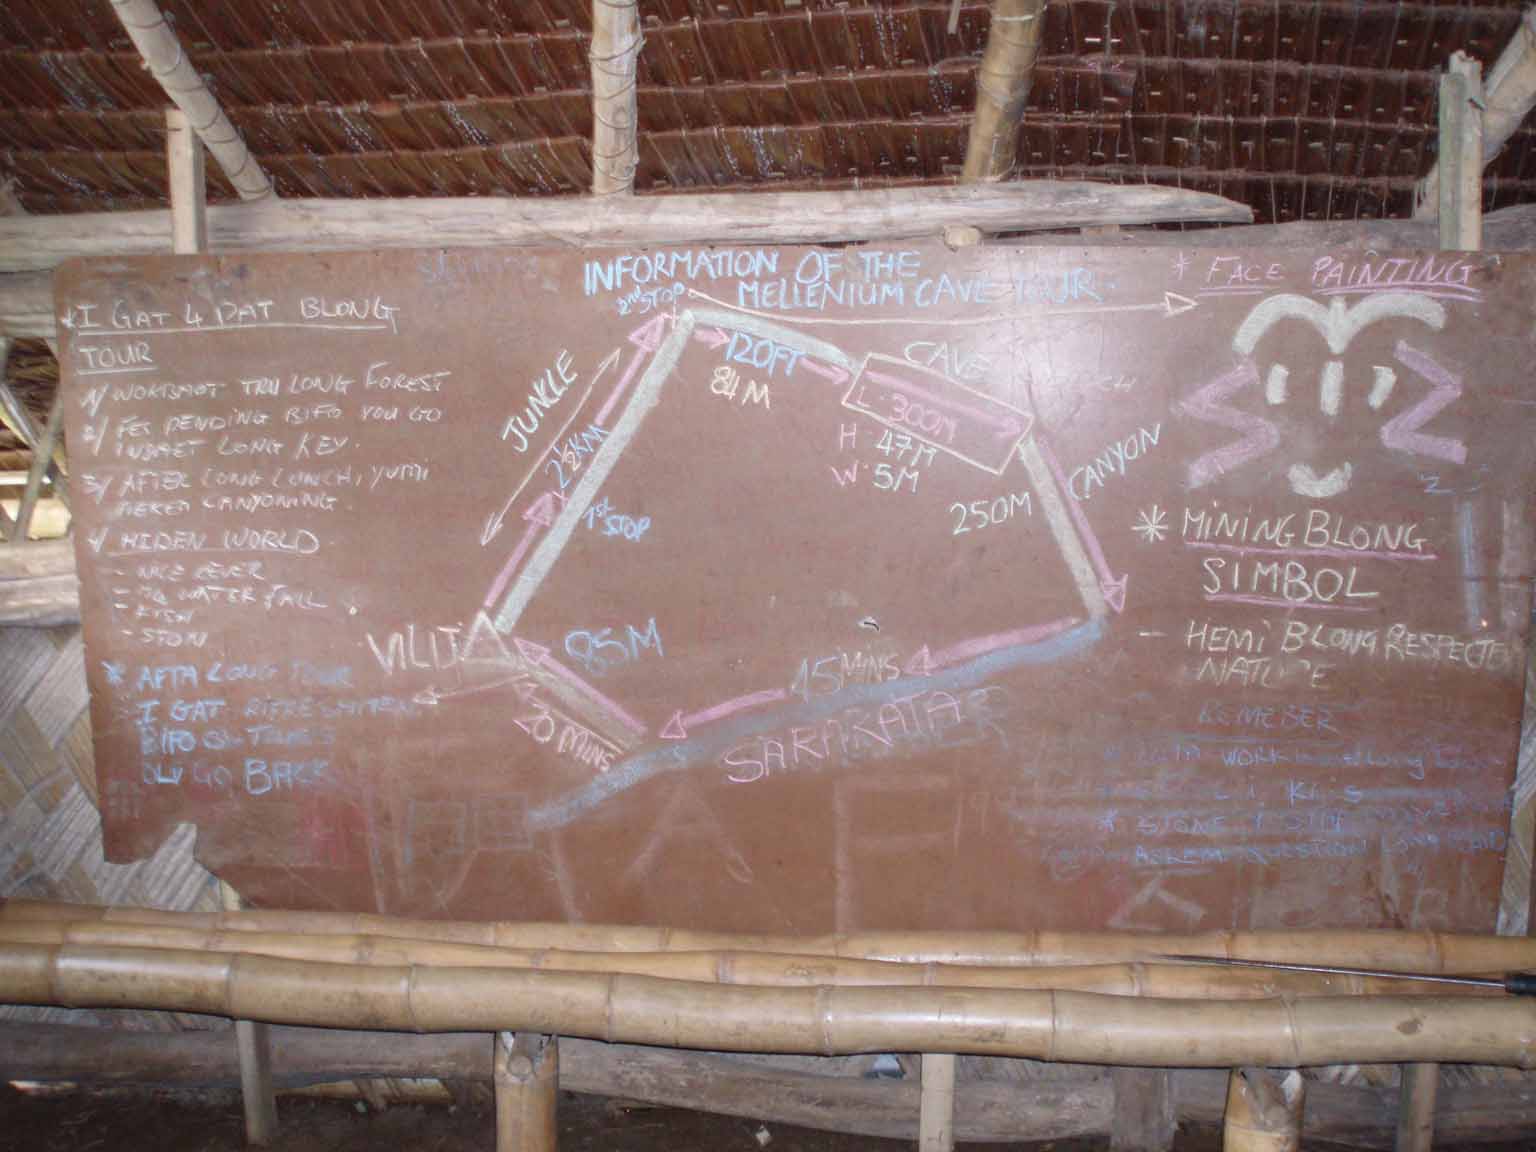 INFORMATION OF THE
MELLENIUM CAVE TOUR
* I GAT 4 PAT BLONG
TOUR
1/ WOKBAOT TRU LONG FOREST
2/ FES PENDING BIFO YOU GO
INSAET LONG KEV.
3/ AFTER LONG LUNCH, YUMI
MEKEM CANYONING.
4/ HIDEN WORLD
- NAES REVER
- WATER FALL
- FISH
- STON
* AFTA LONG TOUR
I GAT RIFRESHMEN
BIFO
GO BACK
2nd STOP
JUNKLE
2½KM
1st STOP
VILIJ
120FT
84M
CAVE
L: 300M
H: 47M
W: 5M
CANYON
250M
45 MINS
SARAKATA
85M
30 MINS
* FACE PAINTING
* MINING BLONG
SIMBOL
- HEMI BLONG RESPECTEM
NATURE
REMEBER
WORK long
* STONE
ASKEM QUESTION LONG